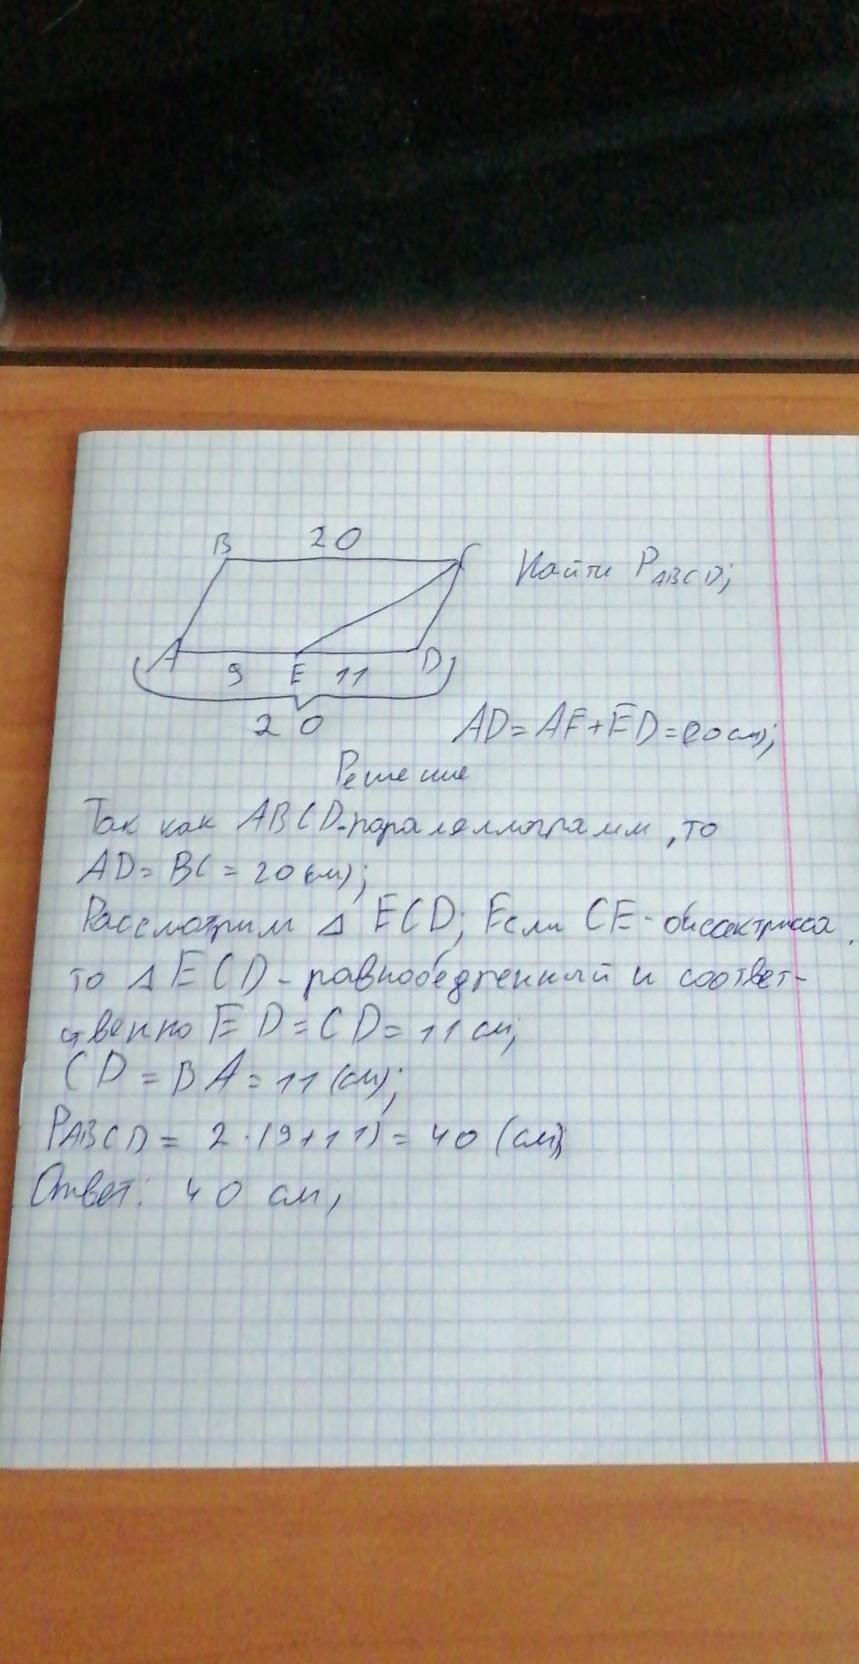 B 20 C
Найти PABCD;
A 9 E 11 D
20
AD=AE+ED=20см);
Решение
Так как ABCD-параллелограмм, то
AD= BC = 20см);
Рассмотрим △ ECD; Если CE- биссектрисса,
то △ ECD - равнобедренный и соответ-
ственно ED=CD=11 см;
CD = BA = 11 (см);
PABCD = 2·(9+11) = 40 (см);
Ответ: 40 см;